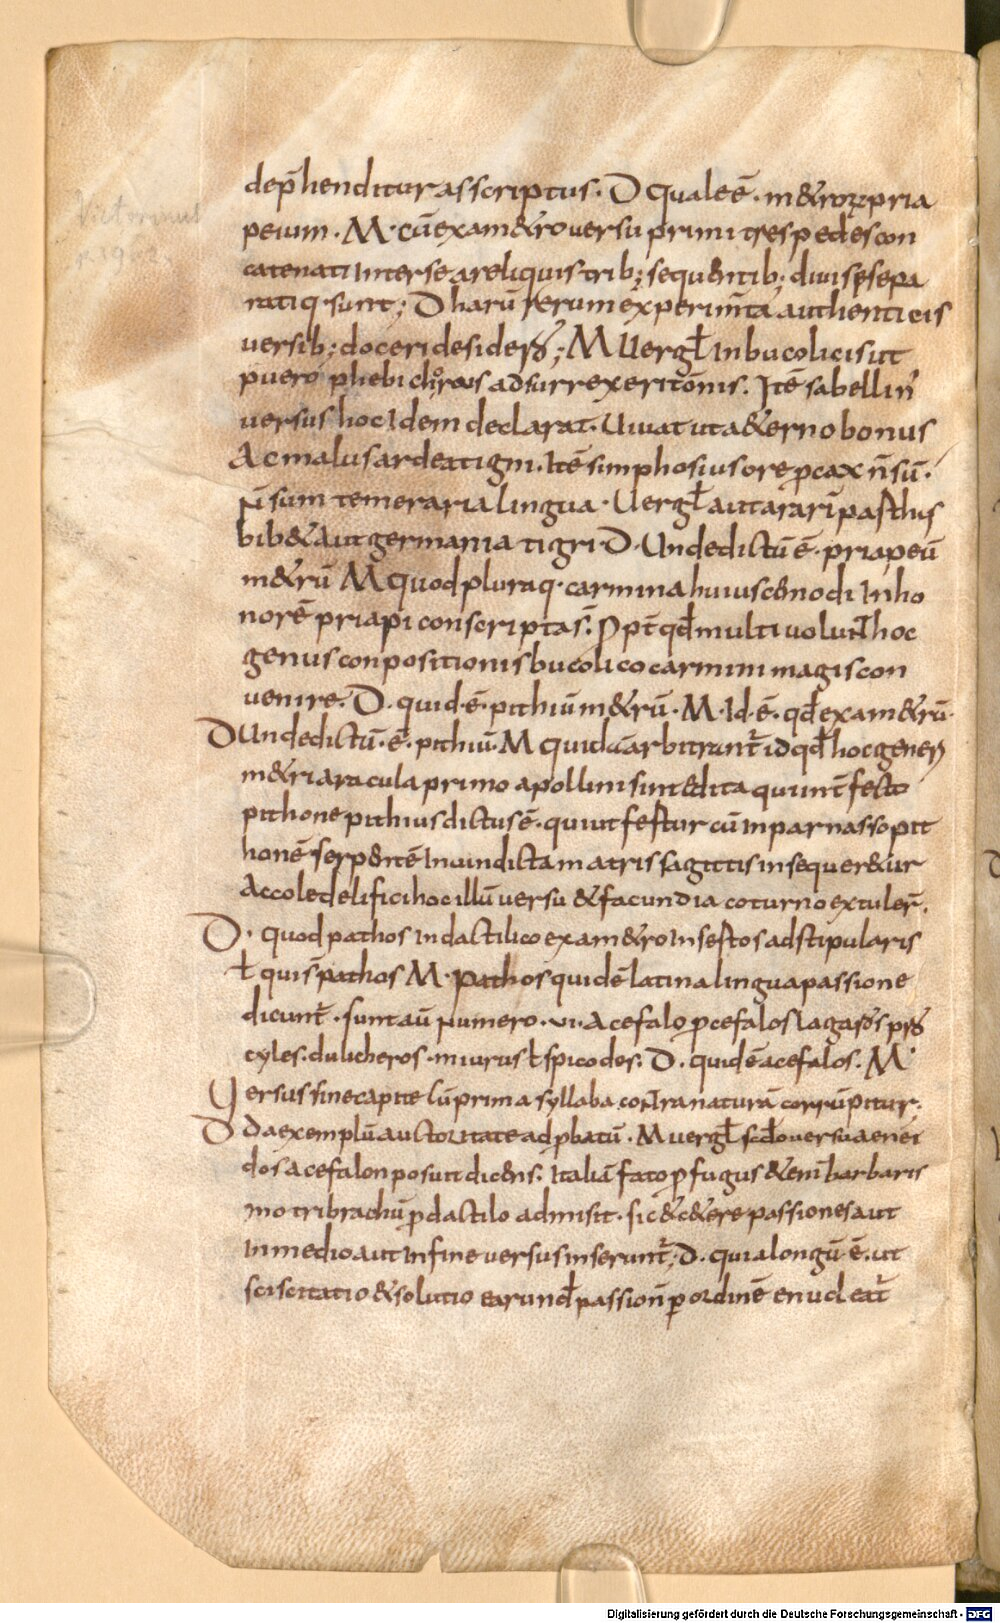 dep̄henditur asscriptus. D Quale ē. m&ro pria
peium. M. cū exam&ro versu primi tres pedes con
catenati Interse a reliquis trib; sequentib; diuisi sepa
ratiq· sunt; D harū rerum experim̄ta authenticis
versib; doceri desidero; M Uergł In bucolicis ut
puero phebi chorus adsurrexerit omnis. Itē sabellin̄
versus hoc Idem declarat. Uiuat uita &erno bonus
Ac malus ardeat igni. Itē simphosius ore pcax n̄ sū.
N sum temeraria lingua. Uergł aut ararī parthus
bib& Aut germania tigri D. Unde dictū ē. priapeū
m&rū M Quod pluraq· carmina huiuscemodi In ho
norē priapi conscriptas. Ppt̄ qđ multi uolunt hoc
genus conpositionis bucolico carmini magis con
venire. D. quid·ē· pithiū m&rū. M. Id·ē· qđ exam&rū.
D Unde dictū·ē· pithiū. M quidā arbitrant̄ id qđ hoc generē
m&ri aracula primo apollini sint edita qui interfecto
pithone pithius dictus ē. qui ut fertur cū In parnasso pit
honē serpentē In uindicta matris sagittis inseque&ur
Accole delifici hoc illū versu & facundia coturno extuler̄.
D. quod pathos In dactilico exam&ro Infestos adstipularis
ł quis pathos M. pathos quidē latina lingua passione
dicunt̄. sunt aū Numero .vi. Acefalos pcefalos lagaros pro
cyles. dulicheros. miurus ł spicodes. D. quid ē acefalos. M.
Versus sine capite cū prima syllaba contra naturā corrūpitur.
D da exemplū auctoritate adpbatū. M uergł scđo versu aenei
dos acefalon posuit dicens. Italiā fato pfugus &enī barbaris
mo tribrachū p dactilo admisit. sic & c&ere passiones aut
In medio aut In fine versus inserunt̄; D. quia longū ē. ut
sciscitatio & solutio earundē passion̄ p ordinē enucleat̄
Digitalisierung gefördert durch die Deutsche Forschungsgemeinschaft - DFG